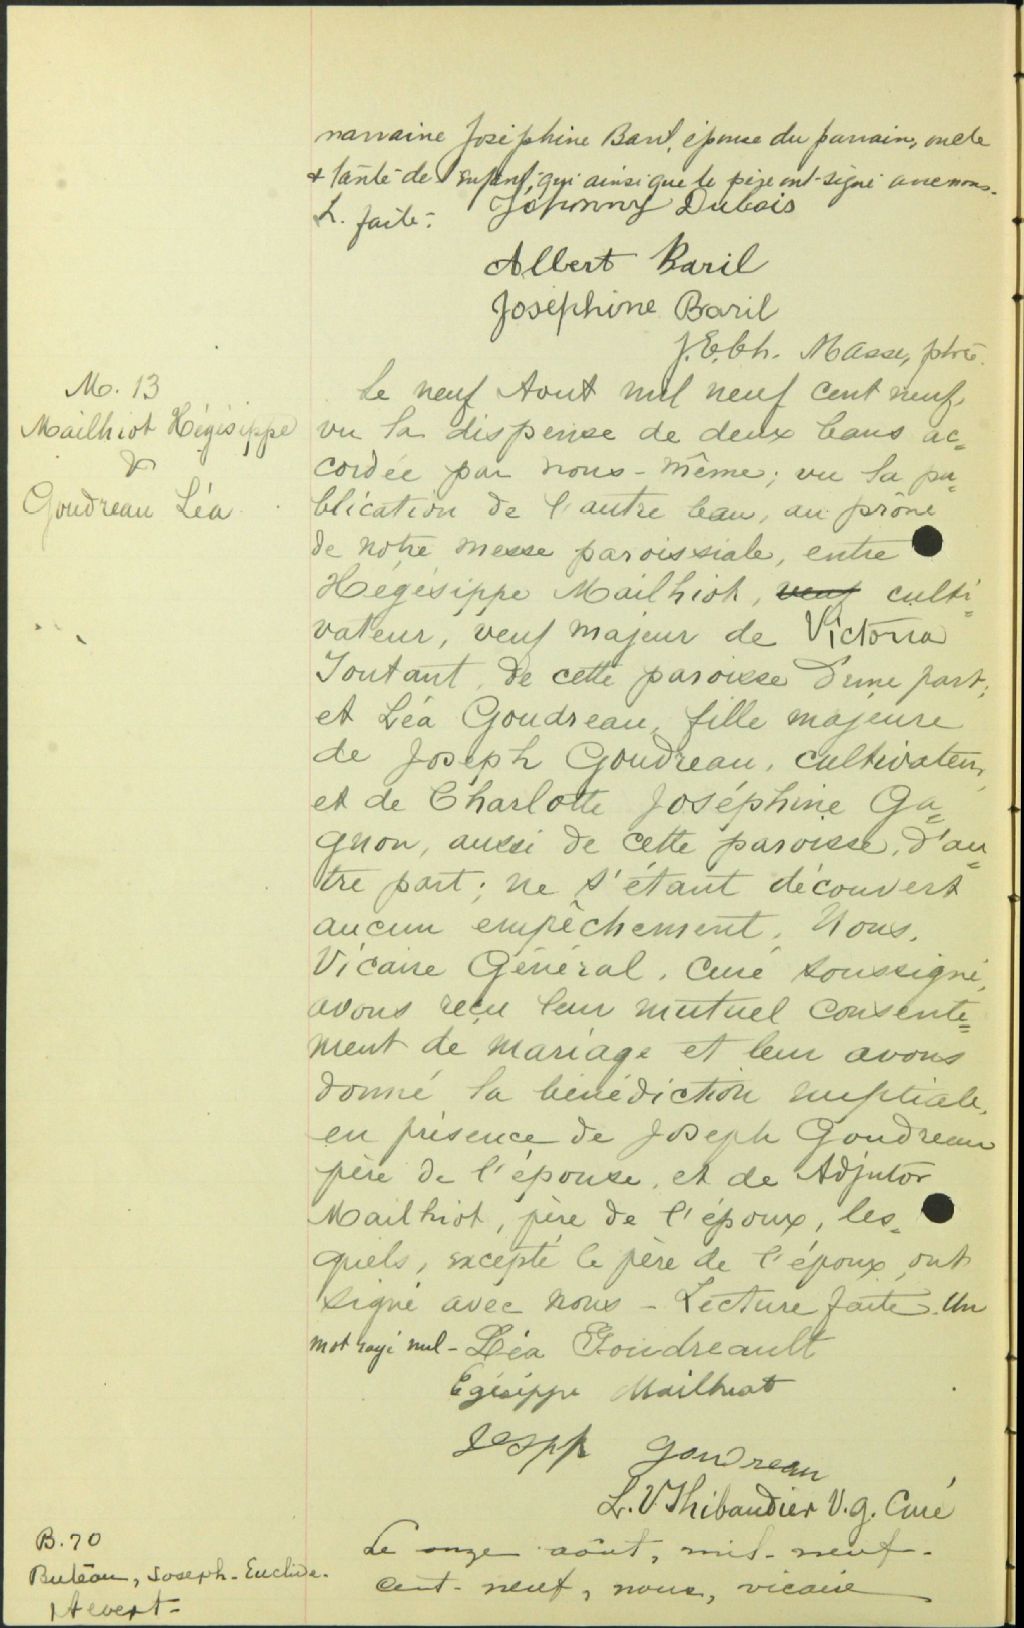 marraine Joséphine Baril, épouse du parrain, oncle
& tante de enfant, qui ainsi que le père ont signé avec nous.
L. faite. Johonny Dubois
Albert Baril
Josephine Baril
J. E. Ch. Masse, ptre.
M. 13
Mailhiot Hégisippe
&
Goudreau Léa
Le neuf Aout mil neuf cent neuf,
vu la dispense de deux bans ac=
cordée par nous-même; vu la pu=
blication de l'autre ban, au prône
de notre messe paroissiale, entre
Hégésippe Mailhiot, veuf culti=
vateur, veuf majeur de Victoria
Toutant, de cette paroisse d'une part;
et Léa Goudreau, fille majeure
de Joseph Goudreau, cultivateur,
et de Charlotte Joséphine Ga=
gnon, aussi de cette paroisse, d'au=
tre part; ne s'étant découvert
aucun empêchement, Nous,
Vicaire Général, Curé soussigné,
avons reçu leur mutuel consente=
ment de mariage et leur avons
donné la bénédiction nuptiale,
en présence de Joseph Goudreau
père de l'épouse, et de Adjutor
Mailhiot, père de l'époux, les=
quels, excepté le père de l'époux, ont
signé avec nous - Lecture faite. Un
mot rayé nul - Léa Goudreault
Egésippe Mailhiot
Josepp Goudreau
L. V. Thibaudier V. g. Curé
B. 70
Buteau, Joseph-Euclide-
Hevert-
Le onze août, mil-neuf-
cent-neuf, nous, vicaire